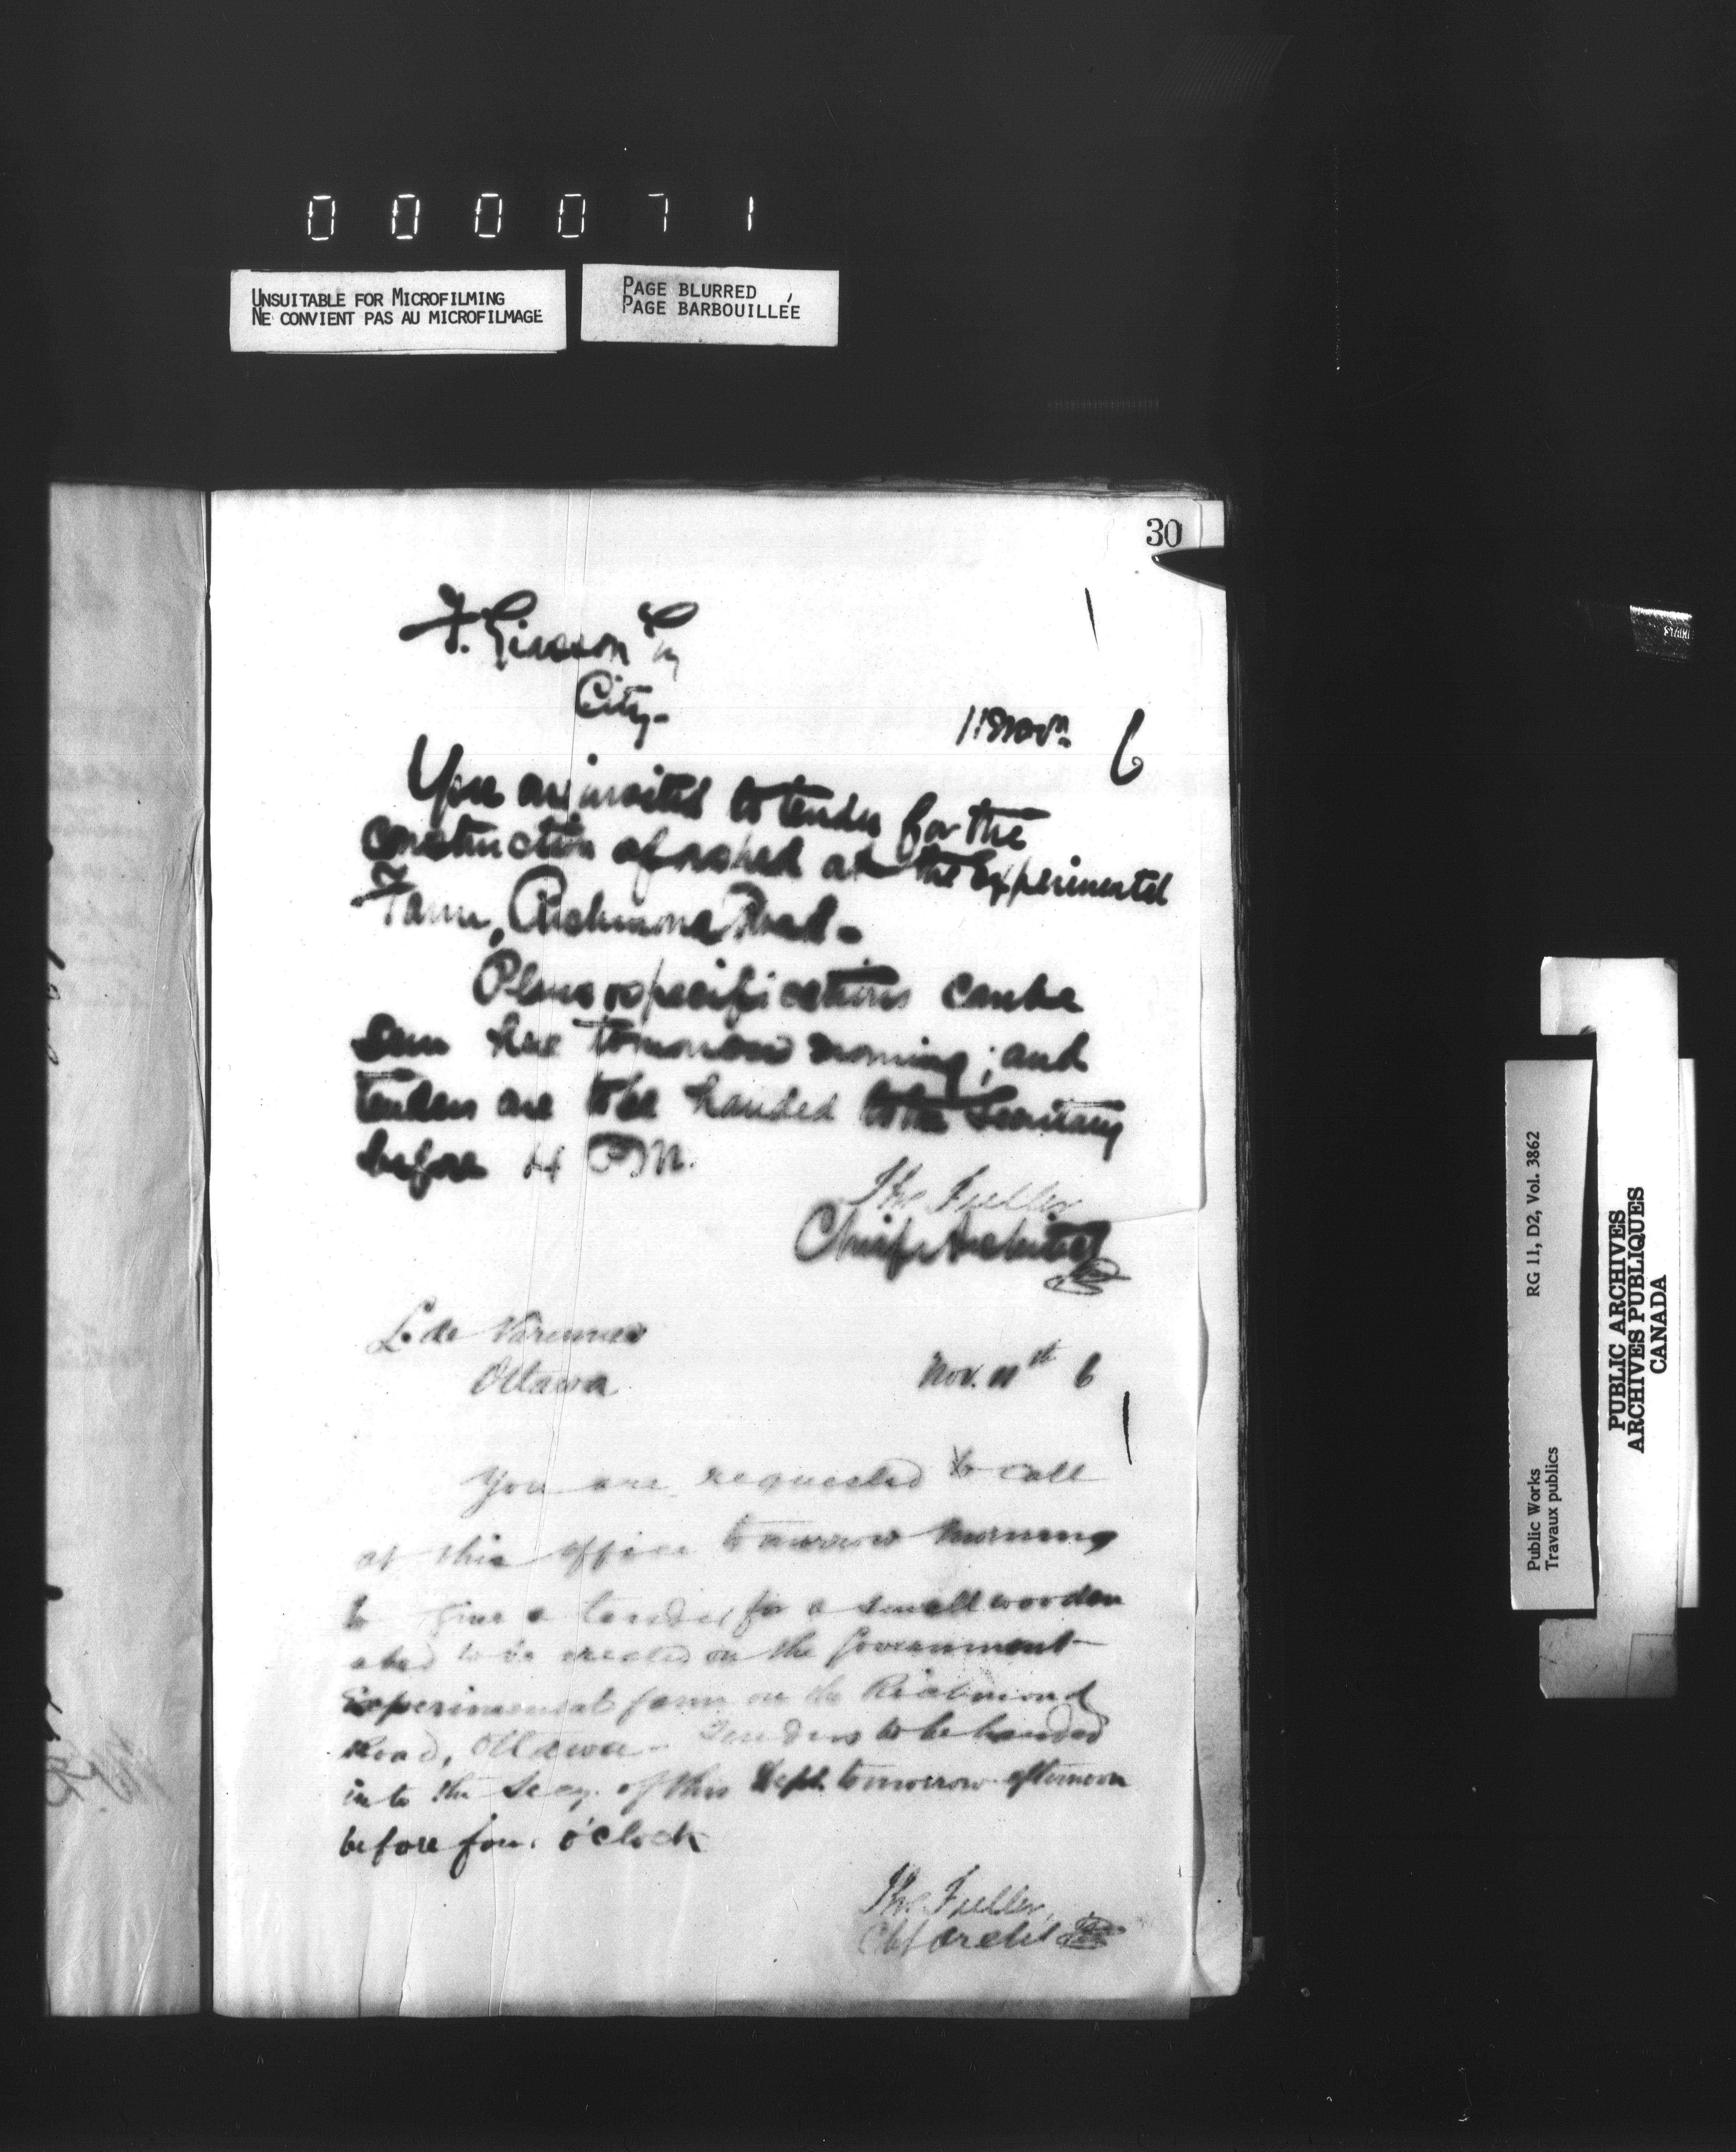 000071
UNSUITABLE FOR MICROFILMING
NE CONVIENT PAS AU MICROFILMAGE
PAGE BLURRED
PAGE BARBOUILLÉE
30
City-
11 Novr. 6
You are invited to tender for the
construction of a shed at the Experimental
Farm, Richmond Road-
Plans & specifications can be
seen here tomorrow morning; and
tenders are to be handed to the Secretary
before 4 P.M.
Thos Fuller
Chief Architect
L. de Varennes
Ottawa
Nov. 11th 6
You are requested to call
at this office tomorrow morning
to give a tender for a small wooden
shed to be erected on the Government
Experimental farm on the Richmond
Road, Ottawa- Tenders to be handed
into the Secy. of this Dept. tomorrow afternoon
before four o'clock
Thos. Fuller,
Chf Archt
Public Works
Travaux publics
RG 11, D2, Vol. 3862
PUBLIC ARCHIVES
ARCHIVES PUBLIQUES
CANADA